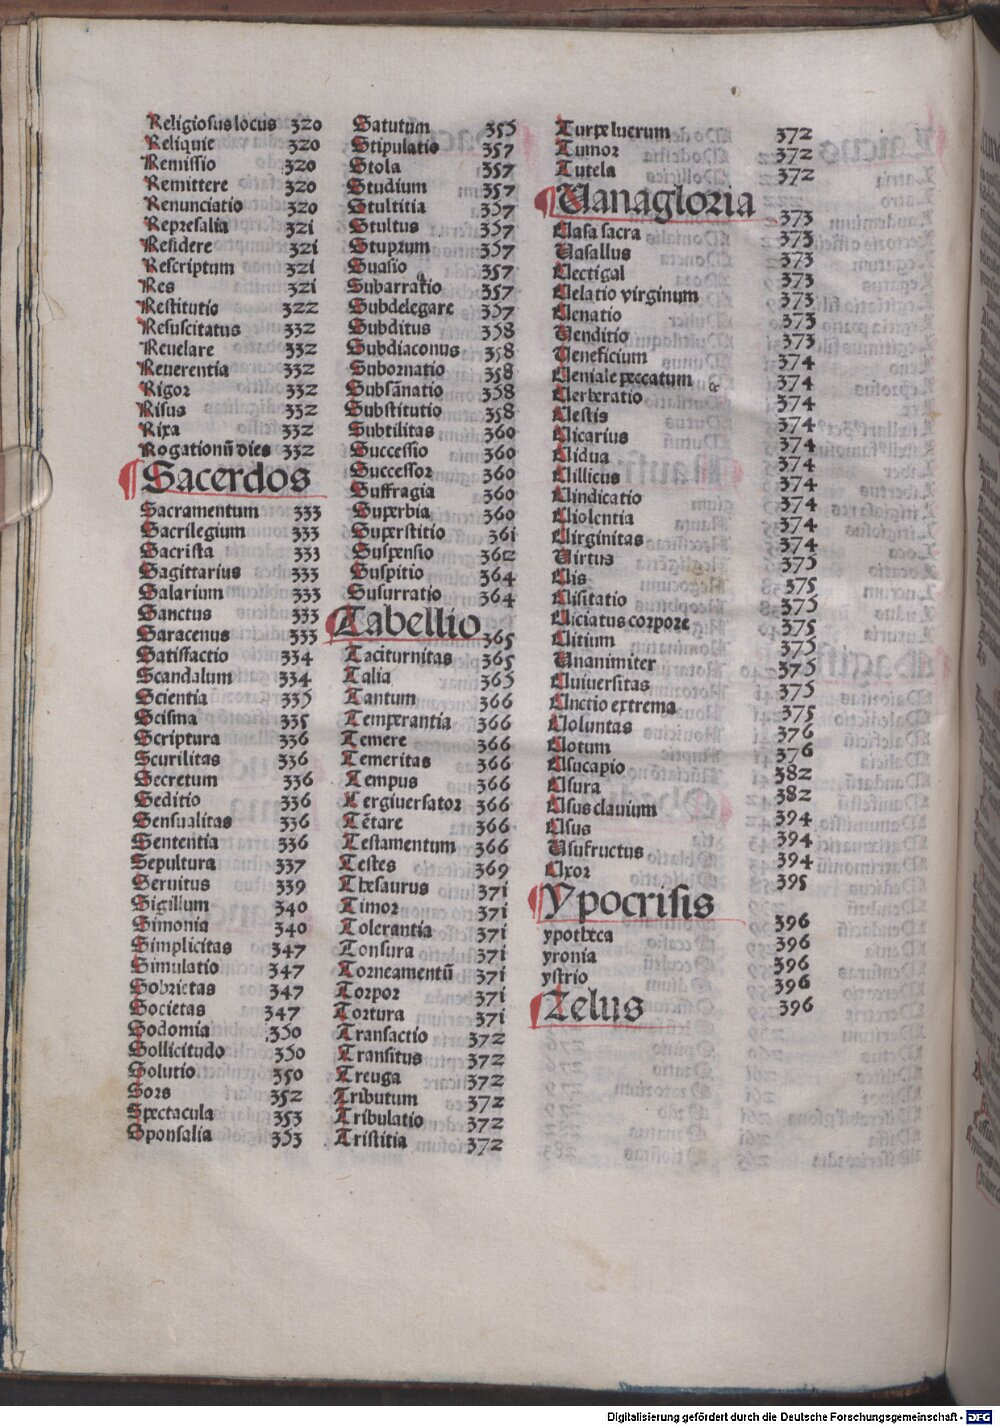 Religiosus locus 320
Reliquie 320
Remissio 320
Remittere 320
Renunciatio 320
Represalia 321
Residere 321
Rescriptum 321
Res 321
Restitutio 322
Resuscitatus 332
Reuelare 332
Reuerentia 332
Rigor 332
Risus 332
Rixa 332
Rogationū dies 332
Sacerdos
Sacramentum 333
Sacrilegium 333
Sacrista 333
Sagittarius 333
Salarium 333
Sanctus 333
Saracenus 333
Satisfactio 334
Scandalum 334
Scientia 335
Scisma 335
Scriptura 336
Scurilitas 336
Secretum 336
Seditio 336
Sensualitas 336
Sententia 336
Sepultura 337
Seruitus 339
Sigillum 340
Simonia 340
Simplicitas 347
Simulatio 347
Sobrietas 347
Societas 347
Sodomia 350
Sollicitudo 350
Solutio 350
Sors 352
Spectacula 353
Sponsalia 353
Satutum 355
Stipulatio 357
Stola 357
Studium 357
Stultitia 357
Stultus 357
Stuprum 357
Suasio 357
Subarratio 357
Subdelegare 357
Subditus 358
Subdiaconus 358
Subornatio 358
Subsānatio 358
Substitutio 358
Subtilitas 360
Successio 360
Successor 360
Suffragia 360
Superbia 360
Superstitio 361
Suspensio 362
Suspitio 364
Susurratio 364
Tabellio 365
Taciturnitas 365
Talia 365
Tantum 366
Temperantia 366
Temere 366
Temeritas 366
Tempus 366
Tergiuersator 366
Tētare 366
Testamentum 366
Testes 369
Thesaurus 371
Timor 371
Tolerantia 371
Tonsura 371
Torneamentū 371
Torpor 371
Tortura 371
Transactio 372
Transitus 372
Treuga 372
Tributum 372
Tribulatio 372
Tristitia 372
Turpe luerum 372
Tumor 372
Tutela 372
Uanagloria 373
Uasa sacra 373
Uasallus 373
Uectigal 373
Uelatio virginum 373
Uenatio 373
Uenditio 373
Ueneficium 374
Ueniale peccatum 374
Uerberatio 374
Uestis 374
Uicarius 374
Uidua 374
Uillicus 374
Uindicatio 374
Uiolentia 374
Uirginitas 374
Uirtus 375
Uis 375
Uisitatio 375
Uiciatus corpore 375
Uitium 375
Unanimiter 375
Uniuersitas 375
Unctio extrema 375
Uoluntas 376
Uotum 376
Usucapio 382
Usura 382
Usus clauium 394
Usus 394
Usufructus 394
Uxor 395
Ypocrisis 396
ypotheca 396
yronia 396
ystrio 396
Zelus 396
Digitalisierung gefördert durch die Deutsche Forschungsgemeinschaft - DFG